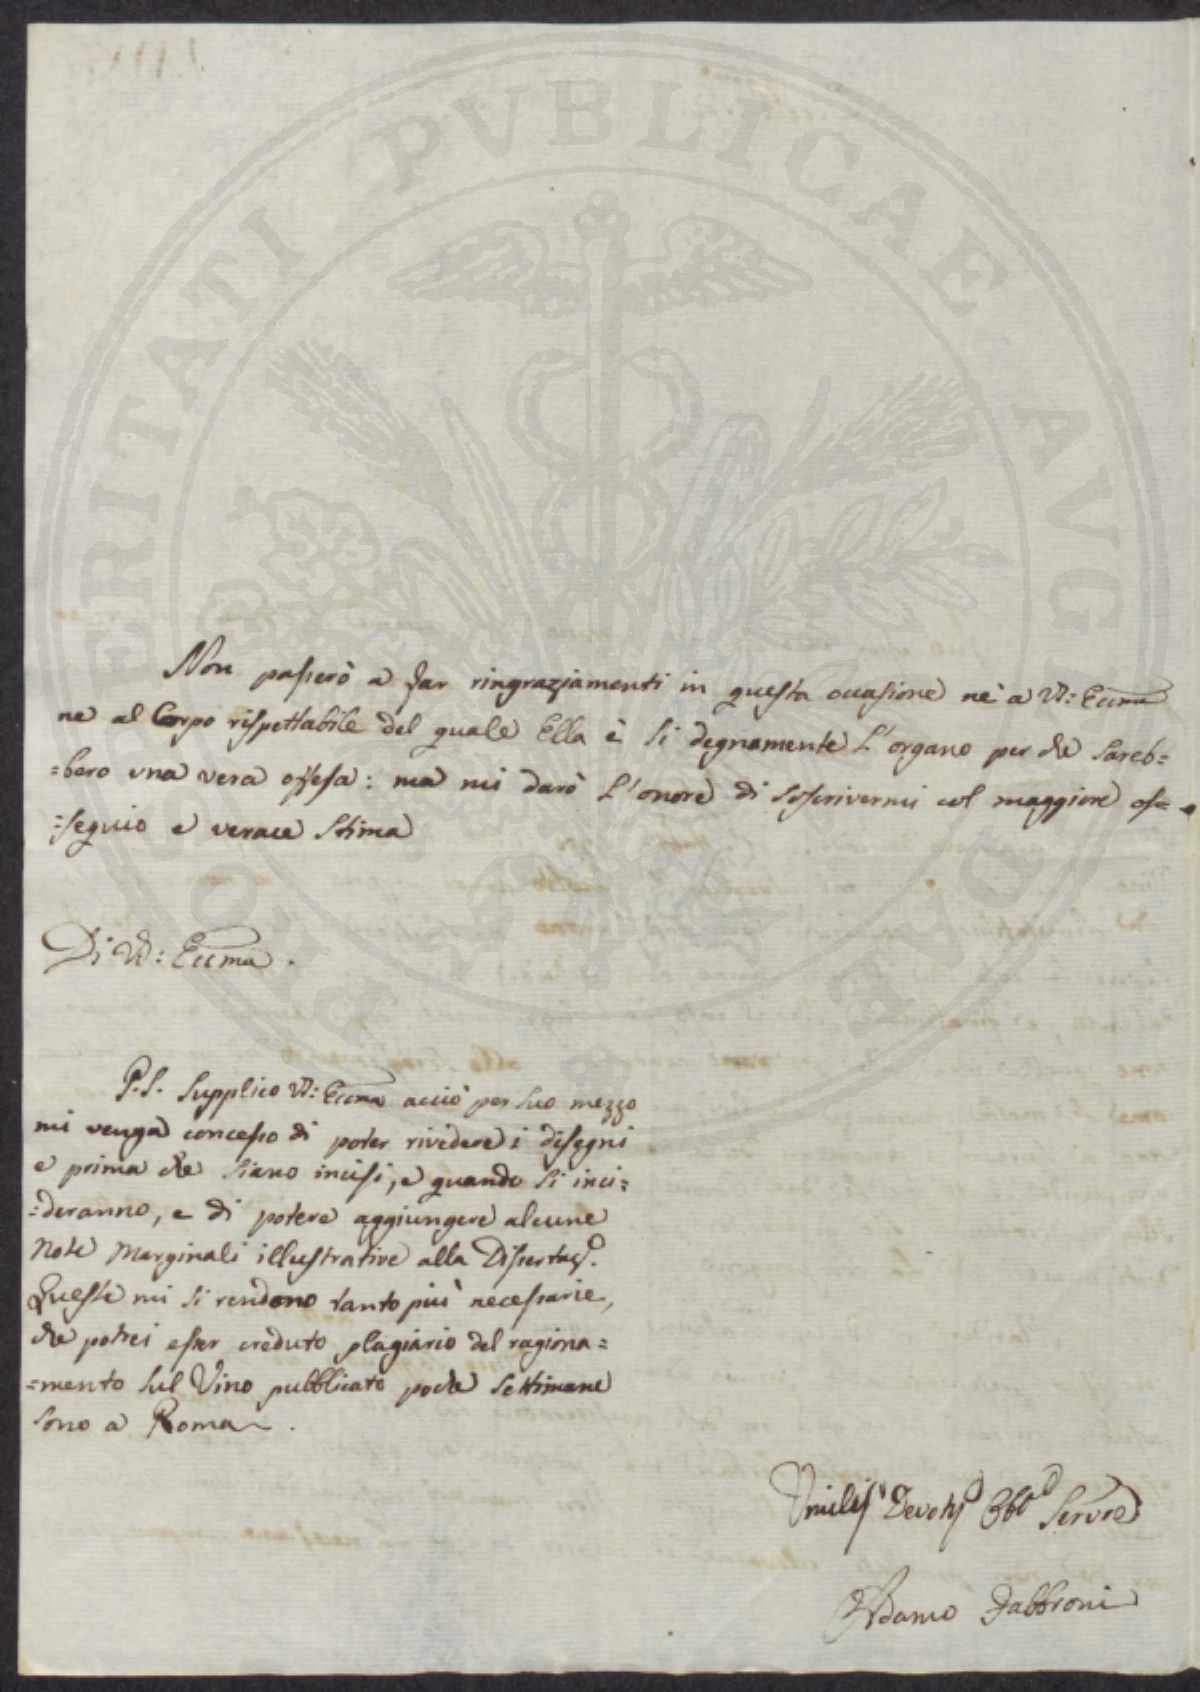 PROSPERITATI PVBLICAE AVGENDAE
Non passerò a far ringraziamenti in questa occasione nè a V: Eccma
ne al Corpo rispettabile del quale Ella è sì degnamente L'organo per che sareb=
=bero una vera offesa: ma mi darò L'onore di soscrivermi col maggiore os=
=sequio e verace stima
Di V: Eccma.
P.S. Supplico V: Eccma acciò per suo mezzo
mi venga concesso di poter rivedere i disegni
e prima che siano incisi, e quando si inci=
=deranno, e di potere aggiungere alcune
Note Marginali illustrative alla Dissertaz.e
Queste mi si rendono tanto più necessarie,
che potrei esser creduto plagiario del ragiona=
=mento sul Vino pubblicato poche settimane
sono a Roma.
Umiliss Devotiss Obb Servre
Adamo Fabbroni